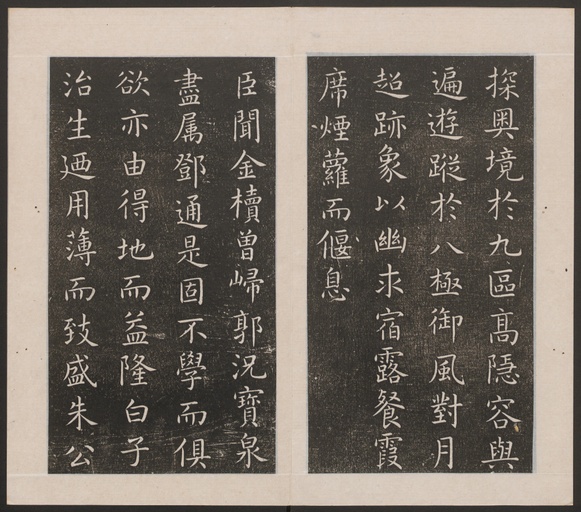 探奥境於九區高隱容與
遍遊蹤於八極御風對月
超跡象以幽求宿露餐霞
席煙蘿而偃息
臣聞金櫝曾歸郭況寶泉
盡属鄧通是固不學而俱
欲亦由得地而益隆白子
治生廼用薄而致盛朱公